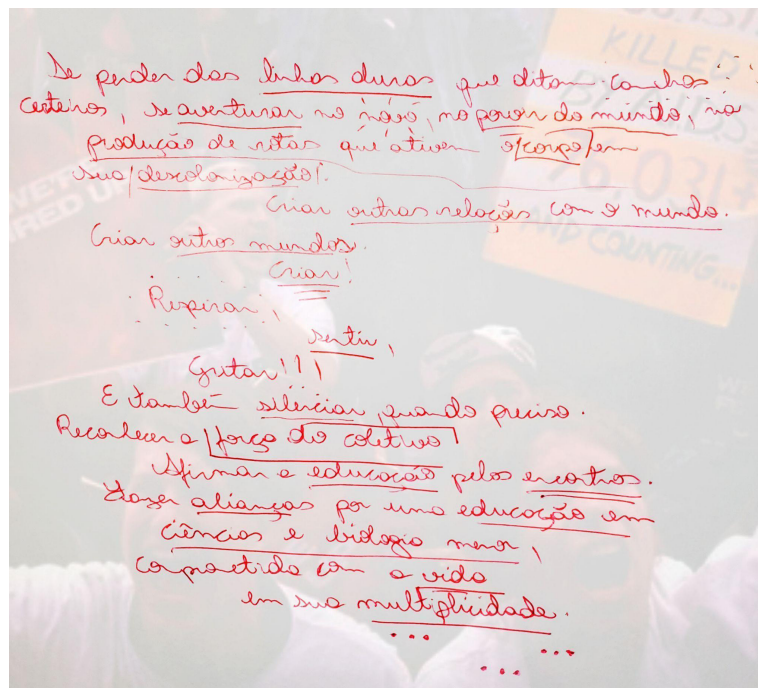 Se perder das linhas duras que ditam caminhos
certeiros, se aventurar no novo, no povoar do mundo, na
produção de rotas que ativem o corpo em
sua descolonização.
Criar outras relações com o mundo.
Criar outros mundos.
Criar!
Respirar,
sentir,
Gritar!!!
E também silenciar, quando preciso.
Reconhecer a força do coletivo
Afirmar a educação pelos encontros.
Fazer alianças por uma educação em
ciências e biologia menor,
compactuada com a vida
em sua multiplicidade.
...
...
...
KILLED
76.031
AND COUNTING...